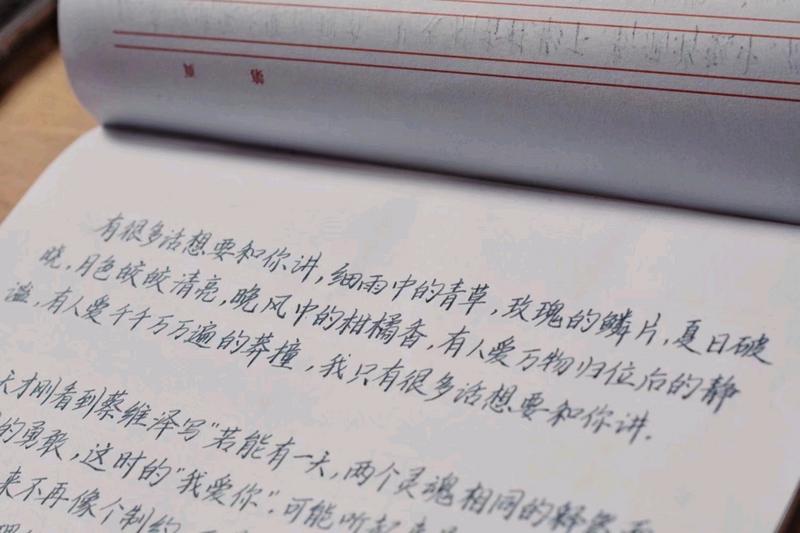 第 页
有很多话想要和你讲,细雨中的青草,玫瑰的鳞片,夏日破
晓,月色皎皎清亮,晚风中的柑橘香,有人爱万物归位后的静
谧,有人爱千千万万遍的莽撞,我只有很多话想要和你讲.
天才刚看到蔡维泽写"若能有一天,两个灵魂相同的释然而
的勇敢,这时的"我爱你".可能听起来
来不再像个制约